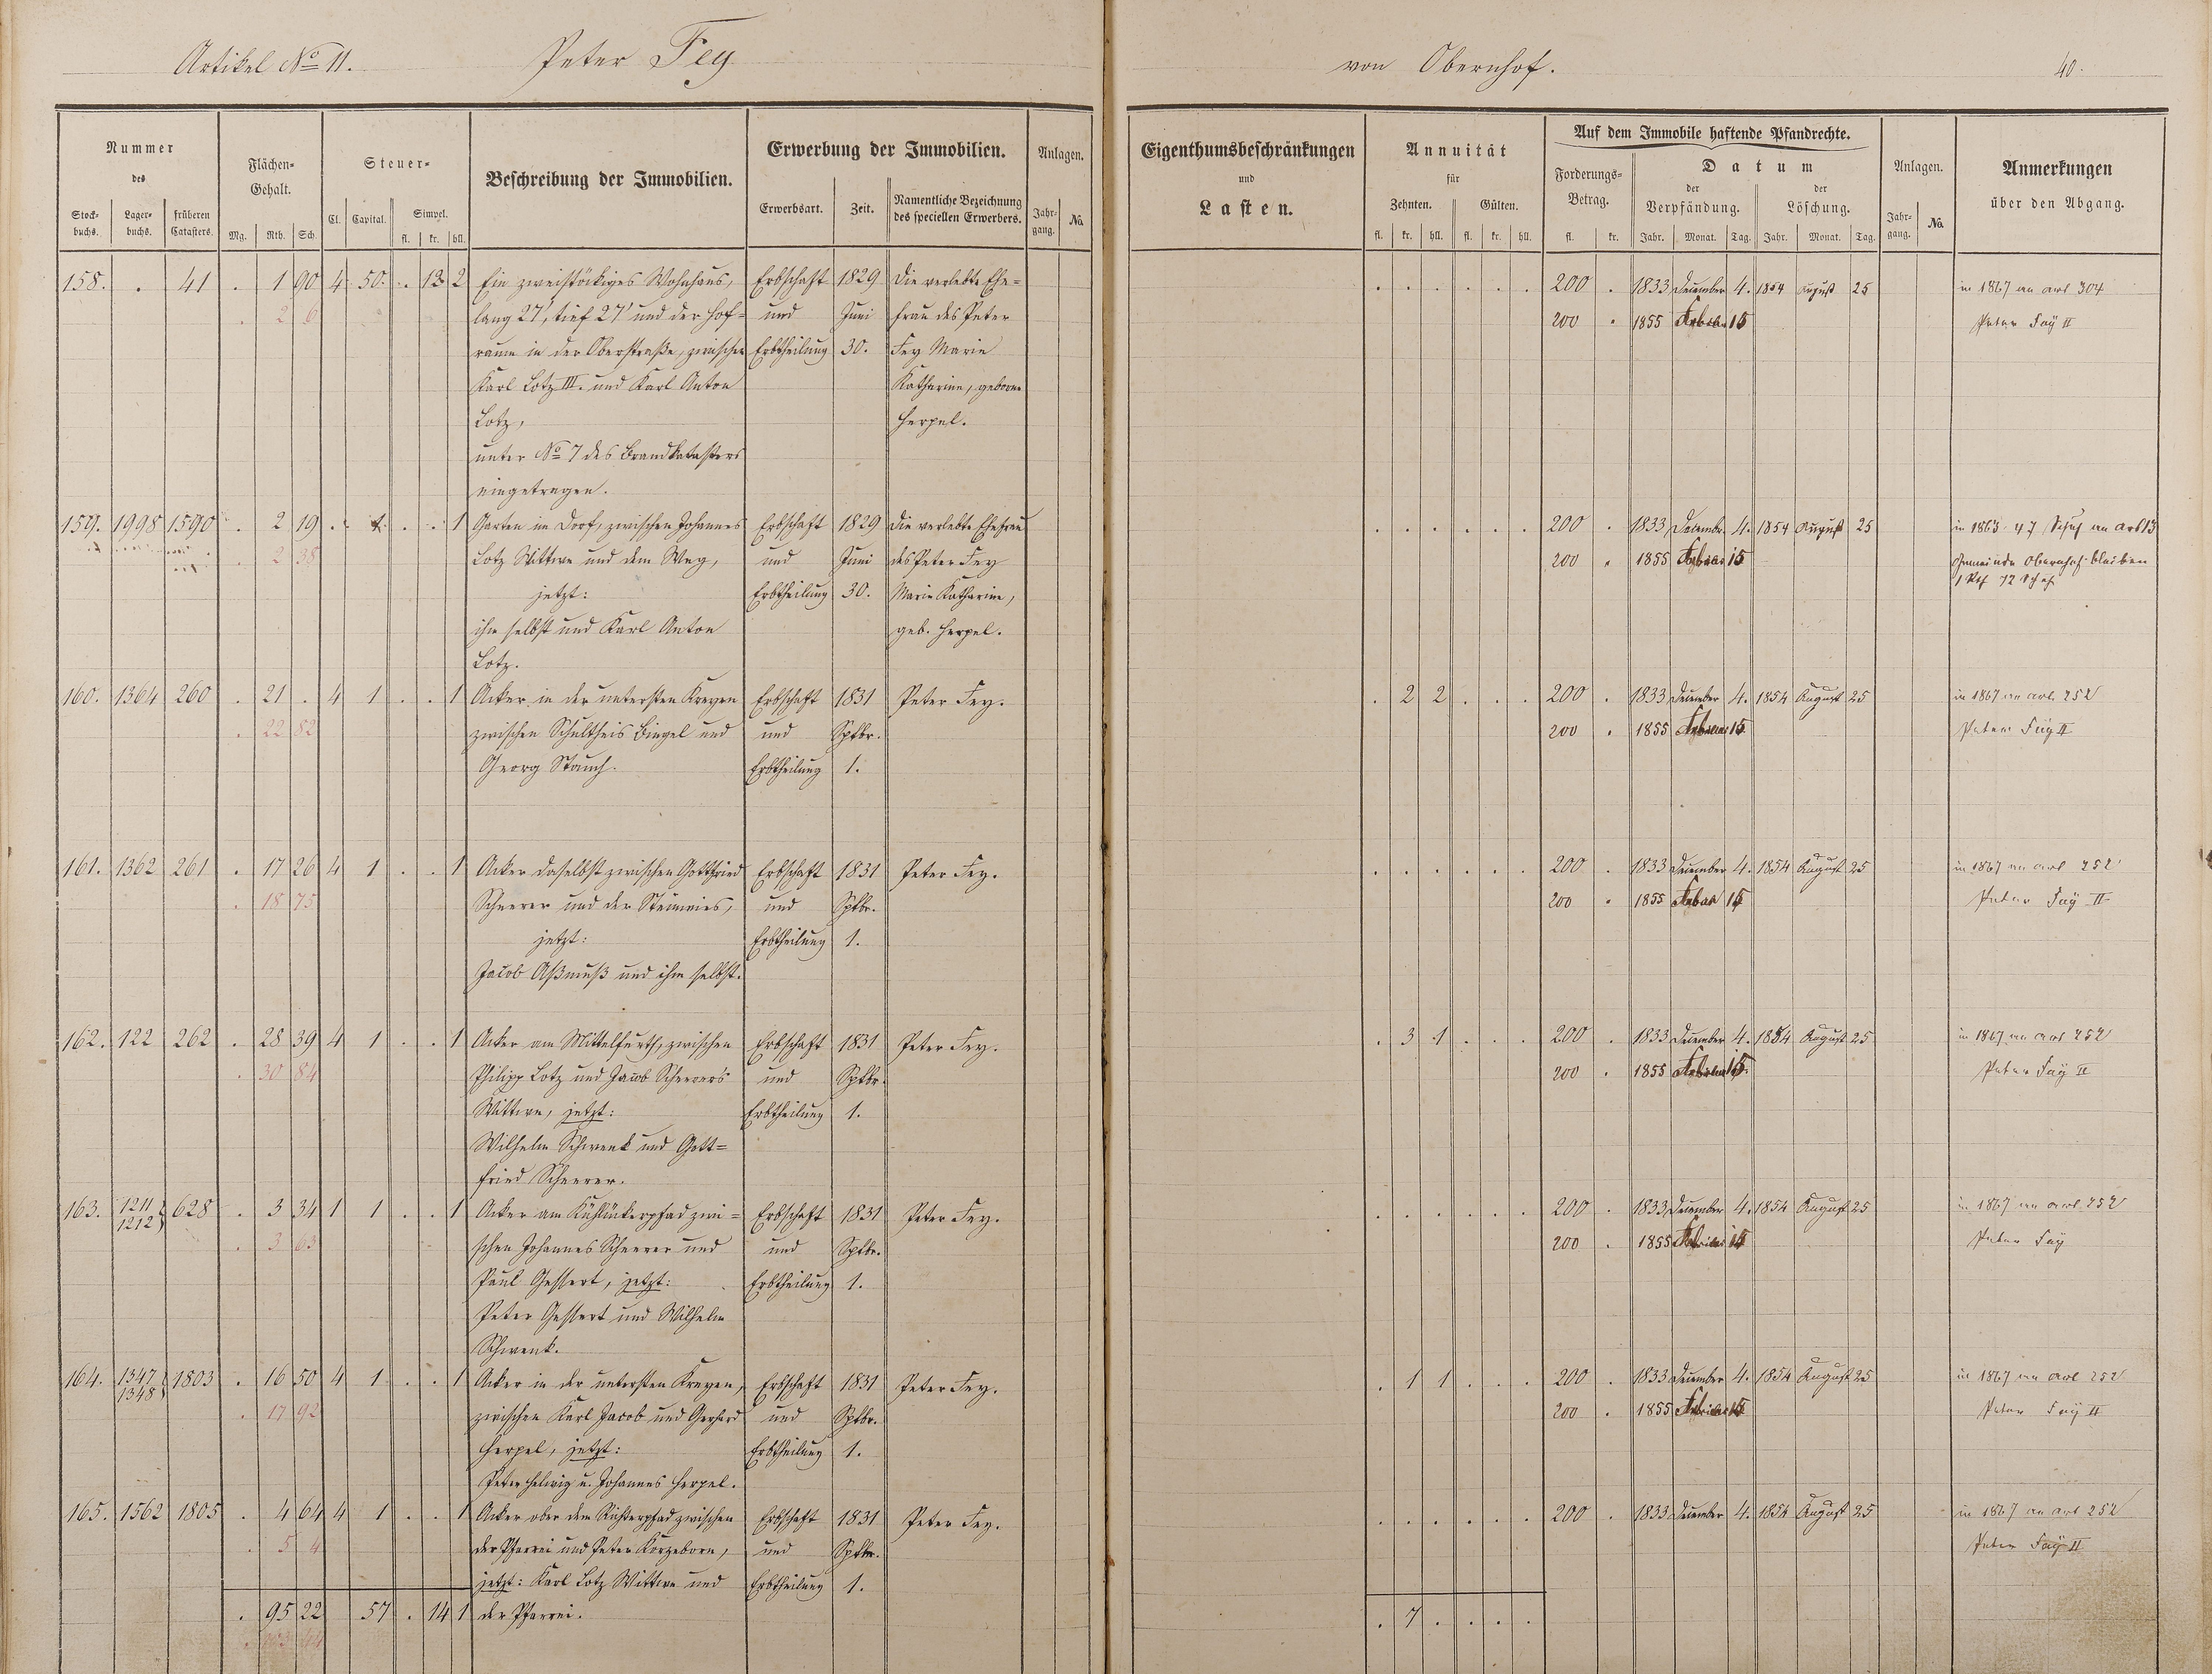 Artikel No 11. Peter Fey von Obernhof. 40.
Nummer des
Stock-buchs. Lager-buchs. früheren Catasters.
Flächen-Gehalt.
Mg. Rth. Sch.
Steuer-
Cl. Capital. Simpel. fl. kr. hll.
Beschreibung der Immobilien.
Erwerbung der Immobilien.
Erwerbsart. Zeit. Namentliche Bezeichnung des speciellen Erwerbers.
Anlagen.
Jahr-gang. No.
Eigenthumsbeschränkungen und Lasten.
Annuität für
Zehnten. Gülten.
fl. kr. hll. fl. kr. hll.
Auf dem Immobile haftende Pfandrechte.
Forderungs-Betrag. fl. kr.
Datum
der Verpfändung. der Löschung.
Jahr. Monat. Tag. Jahr. Monat. Tag.
Anlagen.
Jahr-gang. No.
Anmerkungen über den Abgang.
158. . 41 . 1 90 4 50 . 13 2 Ein zweistöckiges Wohnhaus, Erbschaft 1829 Die verlebte Ehe= . . . . . . 200 . 1833 December 4. 1854 August 25 in 1867 an art 304
. 2 6 lang 27', tief 27' und der Hof= und Juni frau des Peter 200 . 1855 15 Peter Faÿ II
raum in der Oberstraße, zwischen Erbtheilung 30. Fey Marie
Karl Lotz III. und Karl Anton Katharine, geborne
Lotz, Herpel.
unter No 7 des Brandkatasters
eingetragen.
159. 1998 1590 . 2 19 . . . 1 Garten im Dorf, zwischen Johannes Erbschaft 1829 Die verlebte Ehefrau . . . . . . 200 . 1833 December 4. 1854 August 25 in 1863 47 Schuh an art 13
. 2 38 Lotz Wittwe und dem Weg, und Juni des Peter Fey 200 . 1855 Februar 15 Gemeinde Obernhof bleiben
jetzt: Erbtheilung 30. Marie Katharine, 1 Rth 72 Sch
ihm selbst und Karl Anton geb. Herpel.
Lotz.
160. 1364 260 . 21 . 4 1 . . 1 Acker in der untersten Kreyen Erbschaft 1831 Peter Fey. . 2 2 . . . 200 . 1833 December 4. 1854 August 25 in 1867 an art. 252
. 22 82 zwischen Schultheis Bingel und und Sptbr. 200 . 1855 Februar 15 Peter Faÿ II
Georg Stauch. Erbtheilung 1.
161. 1362 261 . 17 26 4 1 . . 1 Acker daselbst zwischen Gottfried Erbschaft 1831 Peter Fey. . . . . . . 200 . 1833 December 4. 1854 August 25 in 1867 an art 252
. 18 75 Scheerer und der Steinwies, und Sptbr. 200 . 1855 15 Peter Faÿ II
jetzt: Erbtheilung 1.
Jacob Aßmuß und ihm selbst.
162. 122 262 . 28 39 4 1 . . 1 Acker am Mittelfurth, zwischen Erbschaft 1831 Peter Fey. . 3 1 . . . 200 . 1833 December 4. 1854 August 25 in 1867 an art 252
. 30 84 Philipp Lotz und Jacob Scheerer's und Sptbr. 200 . 1855 15 Peter Faÿ II
Wittwe, jetzt: Erbtheilung 1.
Wilhelm Schwenk und Gott=
fried Scheerer.
163. 1211 1212 628 . 3 34 1 1 . . 1 Acker am zwi= Erbschaft 1831 Peter Fey. . . . . . . 200 . 1833 December 4. 1854 August 25 in 1867 an art. 252
. 3 63 schen Johannes Scheerer und und Sptbr. 200 . 1855 15 Peter Faÿ
Paul Gessert, jetzt: Erbtheilung 1.
Peter Gessert und Wilhelm
Schwenk.
164. 1347 1348 1803 . 16 50 4 1 . . 1 Acker in der untersten Kreyen, Erbschaft 1831 Peter Fey. . 1 1 . . . 200 . 1833 December 4. 1854 August 25 in 1867 an art 252
. 17 92 zwischen Karl Jacob und Gerhard und Sptbr. 200 . 1855 15 Peter Faÿ II
Herpel, jetzt: Erbtheilung 1.
Peter Helwig u. Johannes Herpel.
165. 1562 1805 . 4 64 4 1 . . 1 Acker ober dem Richterpfad zwischen Erbschaft 1831 Peter Fey. . . . . . . 200 . 1833 December 4. 1854 August 25 in 1867 an art 252
. 5 4 der Pfarrei und Peter Korzeborn, und Sptbr. Peter Faÿ II
jetzt: Karl Lotz Wittwe und Erbtheilung 1.
. 95 22 57 . 14 1 der Pfarrei. . 7 . . . .